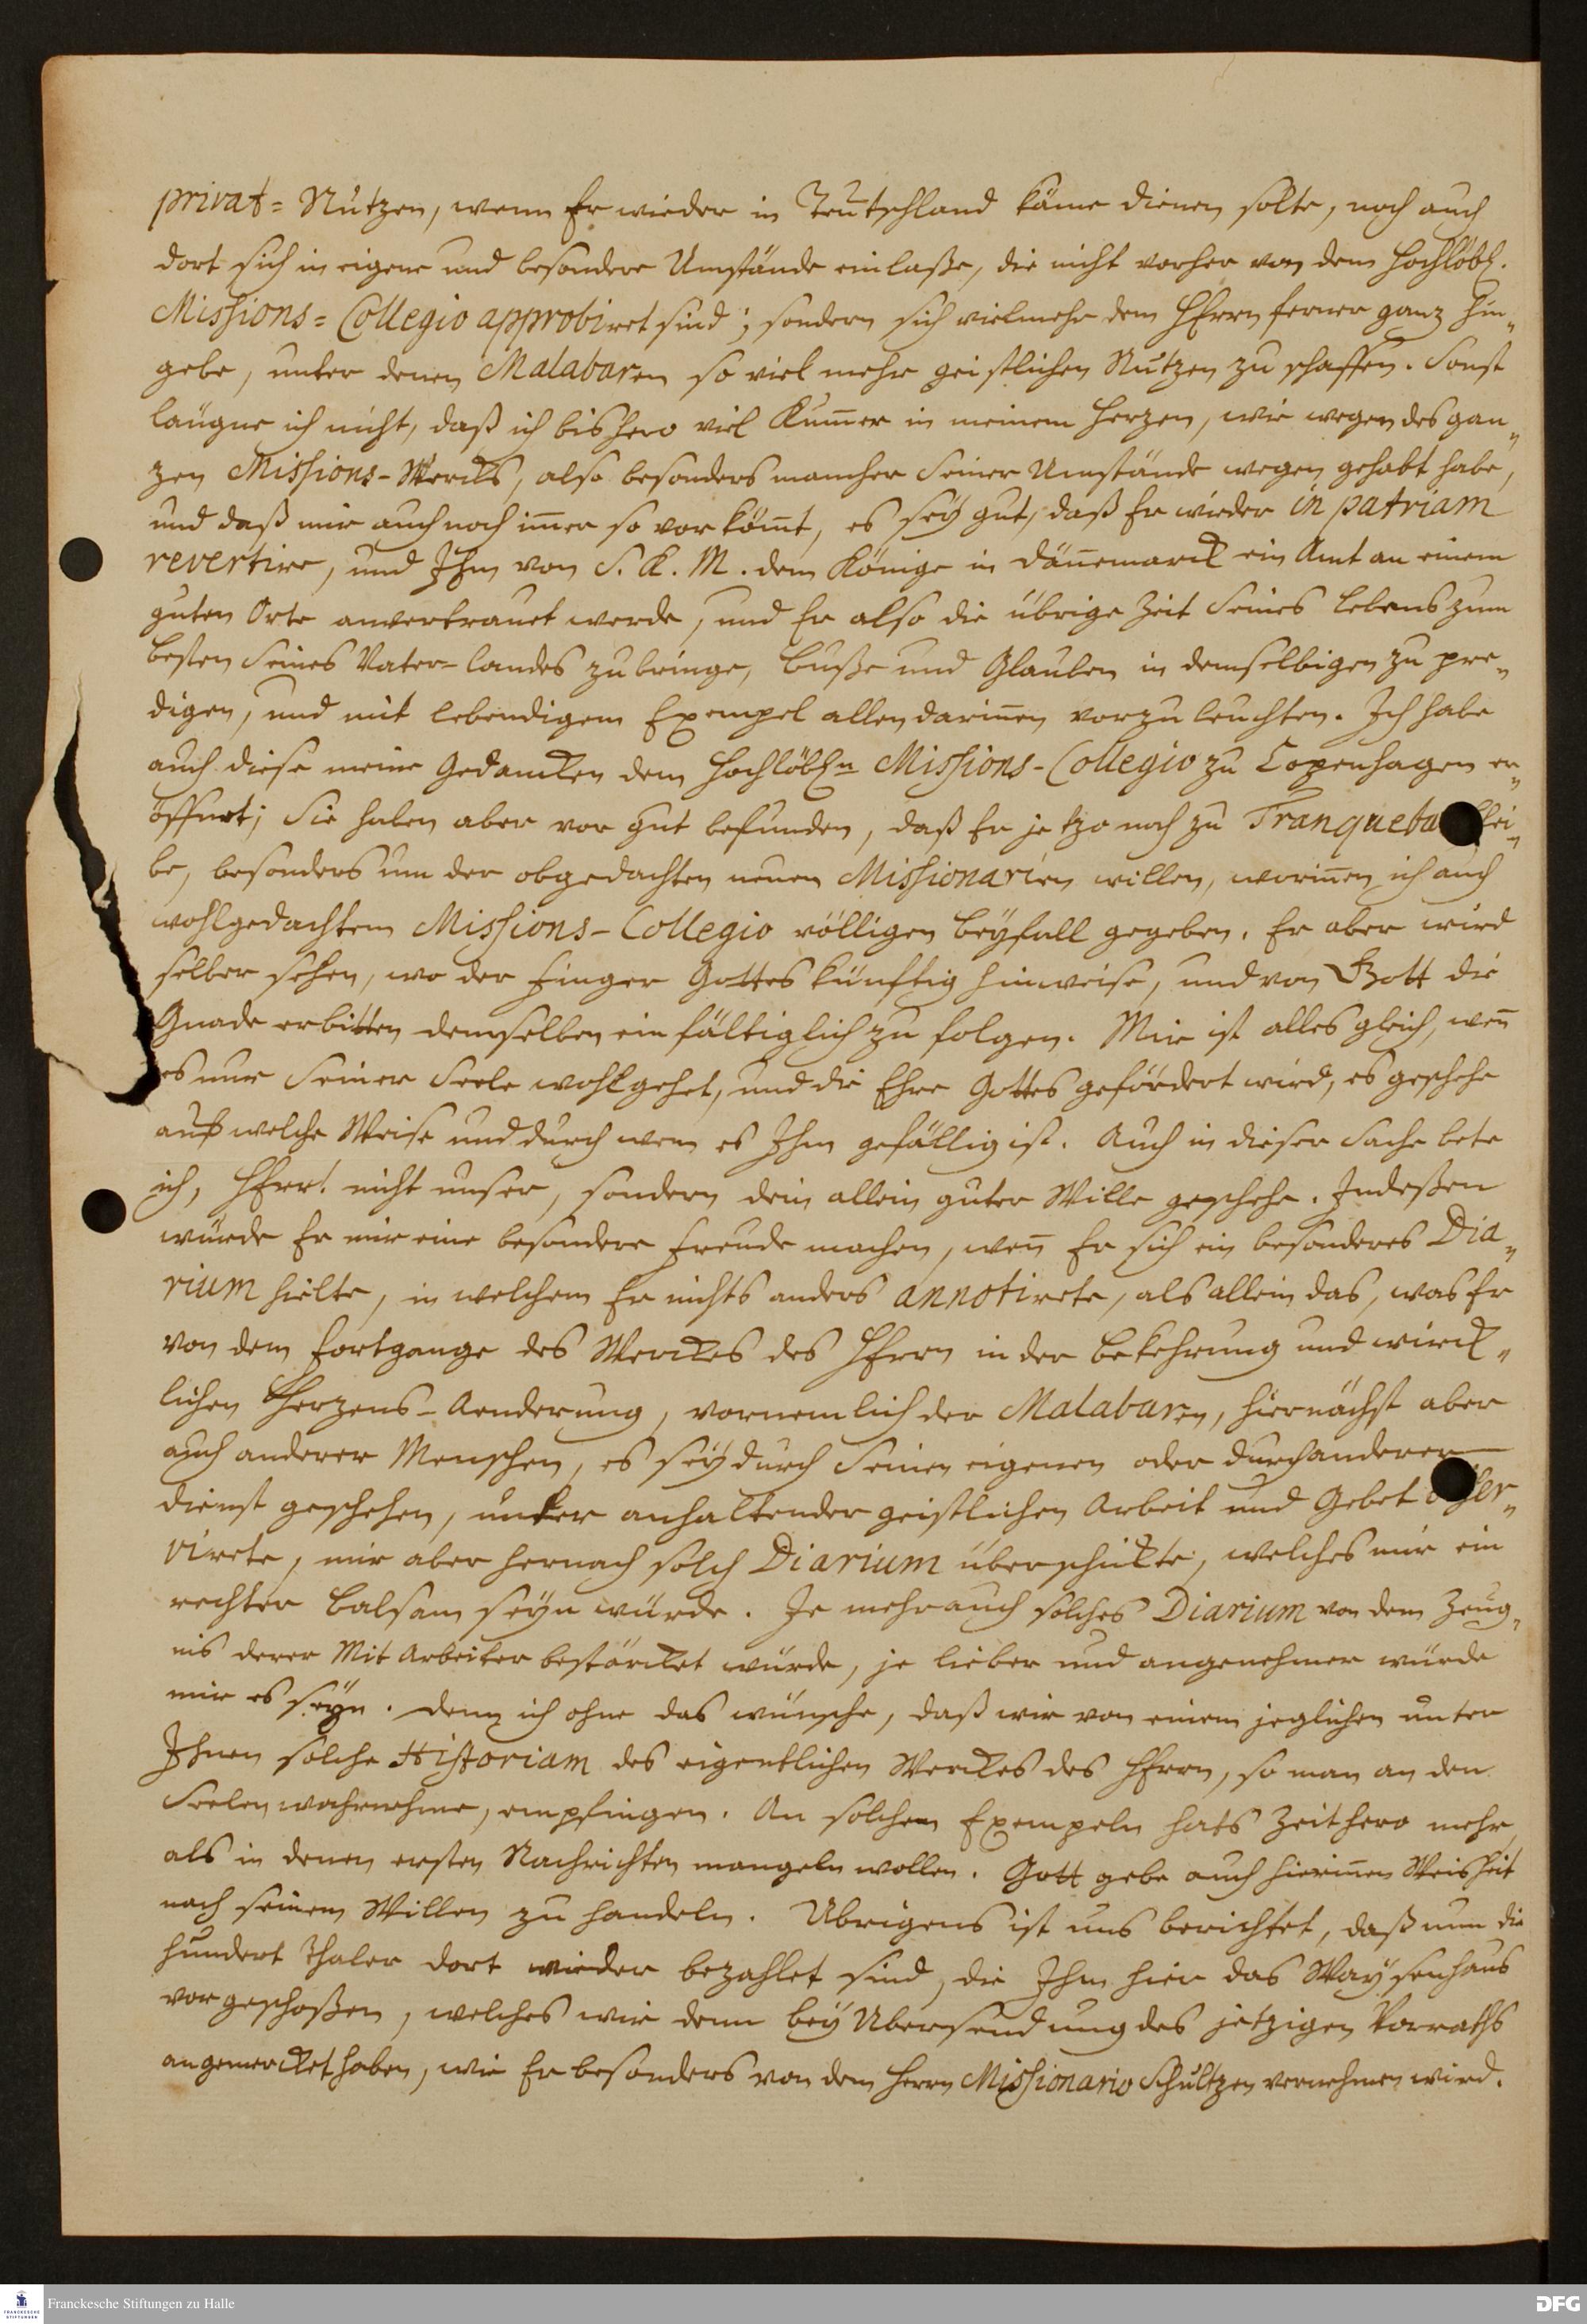 privat= Nutzen, wenn Er wieder in Teutschland käme dienen solte, noch auch
dort sich in eigene und besondere Umstände einlaße, die nicht vorher von dem Hochlöbl.
Missions=Collegio approbiret sind; sondern sich vielmehr dem HErrn ferner ganz hin„
gebe, unter denen Malabaren so viel mehr geistlichen Nutzen zu schaffen. Sonst
läugne ich nicht, daß ich bishero viel Kum̅er in meinem Herzen, wie wegen des gan„
zen Missions-Wercks, also besonders mancher Seiner Umstände wegen gehabt habe,
und daß mir auch noch im̅er so vorköm̅t, es sey gut, daß Er wieder in patriam
revertire, und Ihm von S. K. M. dem Könige in Dän̅emarck ein Amt an einem
guten Orte anvertrauet werde, und Er also die übrige Zeit Seines Lebens zum
besten Seines Vater-Landes zubringe, Buße und Glauben in demselbigen zu pre„
digen, und mit lebendigem Exempel allen darin̅en vorzuleuchten. Ich habe
auch diese meine Gedancken dem Hochlöbln Missions-Collegio zu Copenhagen er„
öffnet; Sie haben aber vor gut befunden, daß Er jetzo noch zu Tranqueba blei„
be, besonders um der obgedachten neuen Missionarien willen, worin̅en ich auch
wohlgedachtem Missions-Collegio völligen Beyfall gegeben. Er aber wird
selber sehen, wo der Finger Gottes künftig hinweise, und von Gott die
Gnade erbitten demselben einfältiglich zu folgen. Mir ist alles gleich, wen̅
es nur Seiner Seele wohlgehet, und die Ehre Gottes gefördert wird, es geschehe
auf welche Weise und durch wem es Ihm gefällig ist. Auch in dieser Sache bete
ich, HErr! nicht unser, sondern dein allein guter Wille geschehe. Indeßen
würde Er mir eine besondere Freude machen, wen̅ Er sich ein besonderes Dia„
rium hielte, in welchem Er nichts anders annotirete, als allein das, was Er
von dem Fortgange des Werckes des HErrn in der Bekehrung und wirck„
lichen Herzens-Aenderung, vornemlich der Malabaren, hiernächst aber
auch anderer Menschen, es sey durch Seinen eigenen oder durch anderer
Dienst geschehen, unter anhaltender geistlichen Arbeit und Gebet obser„
virete, mir aber hernach solch Diarium überschickte, welches mir ein
rechter Balsam seyn würde. Je mehr auch solches Diarium von dem Zeug„
nis derer Mit Arbeiter bestärcket würde, je lieber und angenehmer würde
mir es seyn. Denn ich ohne das wünsche, daß wir von einem jeglichen unter
Ihnen solche Historiam des eigentlichen Werckes des HErrn, so man an den
Seelen wahrnehme, empfingen. An solchen Exempeln hats Zeithero mehr,
als in denen ersten Nachrichten mangeln wollen. Gott gebe auch hierin̅en Weisheit
nach seinem Willen zu handeln. Ubrigens ist uns berichtet, daß nun die
hundert Thaler dort wieder bezahlet sind, die Ihm hier das Waysenhaus
vorgeschoßen, welches wir denn bey Ubersendung des jetzigen Vorraths
angemercket haben, wie Er besonders von dem Herrn Missionario Schultzen vernehmen wird.
Franckesche Stiftungen zu Halle
DFG